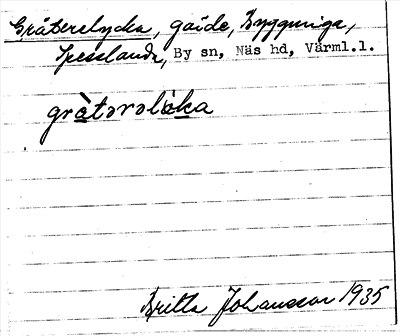 Gråterelycka, gårde, Byggninga,
Speselanda, By sn, Näs hd, Värml.l.
gràtərəlàka
Britta Johansson 1935